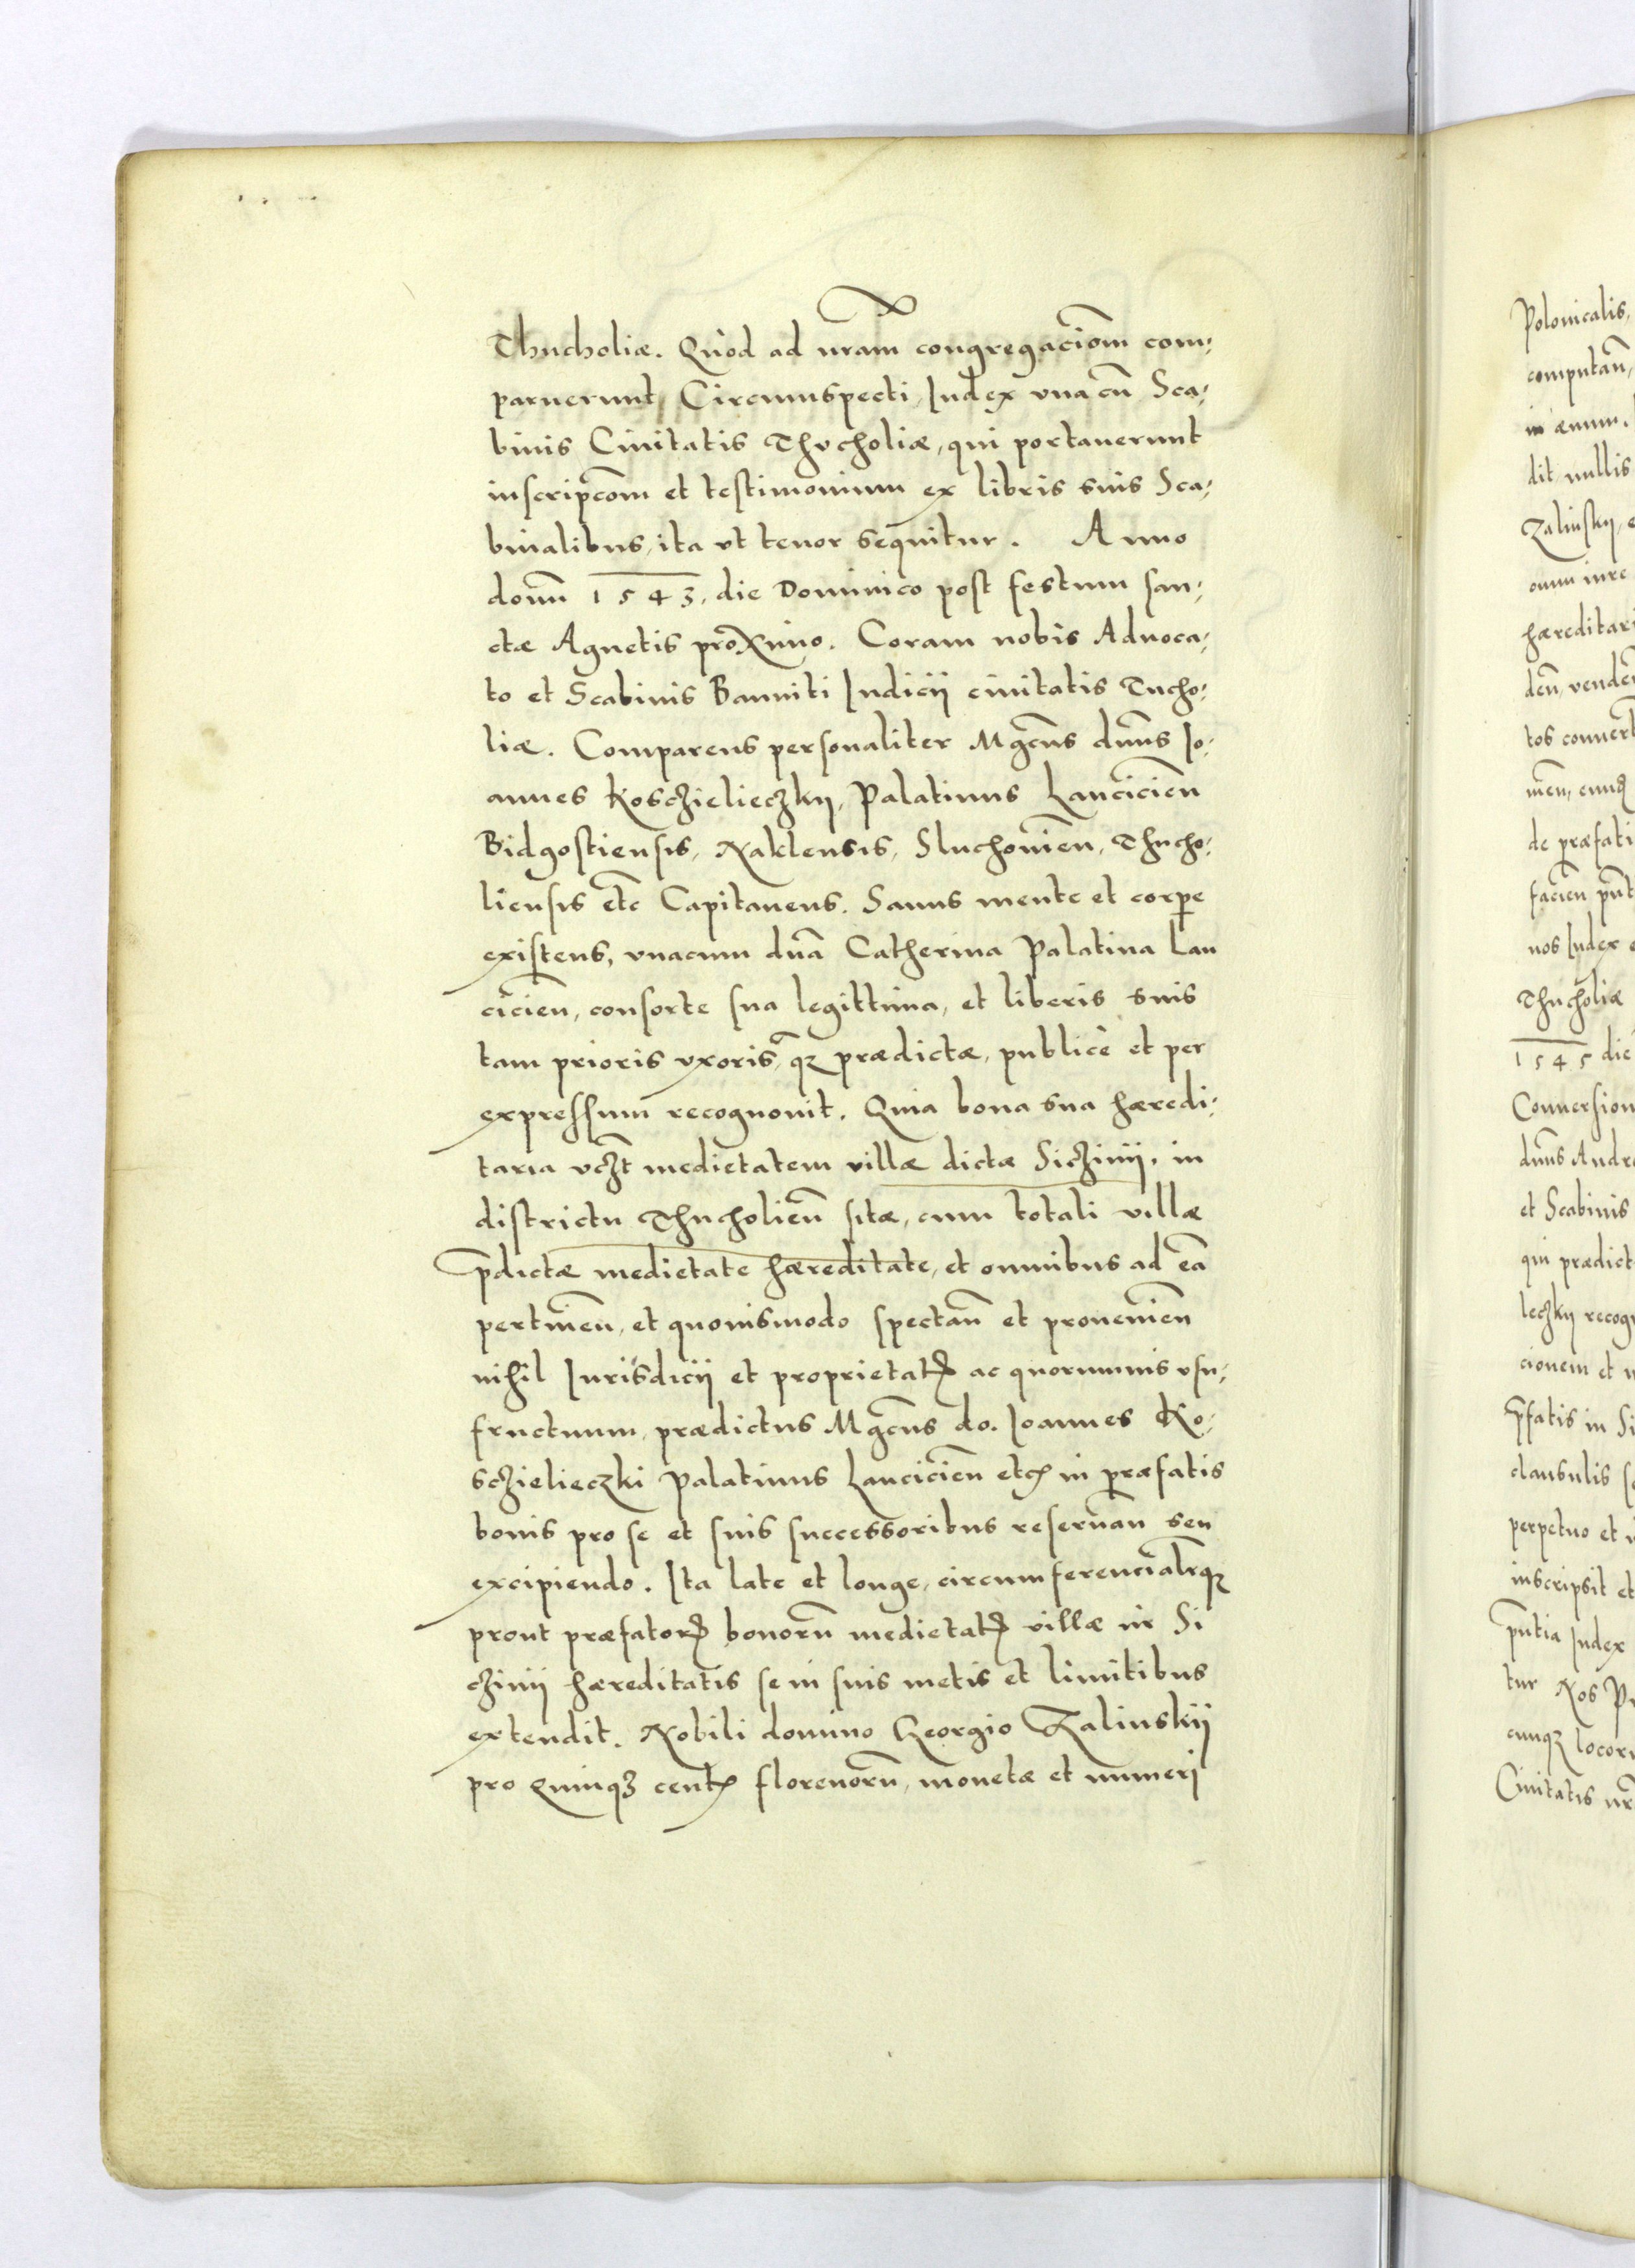 Thucholiæ. Quod ad nram̄ congregaciom̄ com-
paruerunt, Circumspecti, Iudex vna cū Sca-
binis Ciuitatis Thvcholiæ, qui portauerunt
inscripcōm et testimonium ex libris suis Sca-
binalibus, ita vt tenor sequitur. Anno
domī 1543, die Dominico post festum san-
ctæ Agnetis proximo. Coram nobis Aduoca-
to et Scabinis Banniti Iudicij ciuitatis Tucho-
liæ. Comparens personaliter Mgcūs dnūs Io-
annes Kosczielieczkij, Palatinus Lancicien̄
Bidgostiensis, Naklensis, Sluchouien̄, Thucho-
liensis etc̄ Capitaneus. Sanus mente et corpe
existens, vnacum dnā Catherina Palatina Lan
cicien̄, consorte sua legittima, et liberis suis
tam prioris vxoris, qꝫ prædictæ, publicè et per
expressum recognouit. Quia bona sua hæredi-
taria vczt̄ medietatem villæ dictæ Siczinij, in
districtu Thucholien̄ sitæ, cum totali villæ
p̄dictæ medietate hæreditate, et omnibus ad eā
pertinen̄, et quouismodo spectan̄ et prouenien̄
nihil Iurisdicij et proprietatꝭ ac quorumuis vsu-
fructuum, prædictus Mgcūs do. Ioannes Ko-
sczielieczki Palatinus Lancicien̄ etcꝭ in præfatis
bonis pro se et suis successoribus reseruan̄ seu
excipiendo. Ita late et longe, circumferencialrqꝫ
prout præfatorꝝ bonorū medietatꝭ villæ in Si
czinij hæreditatis se in suis metis et limitibus
extendit. Nobili domino Georgio Zalinskij
pro Quinqꝫ centꝭ florenorū, monetæ et numeri
Polonicalis,
computan̄,
in æuum.
dit, nullis
Zalinskij, e
omni iure
hæreditari
den̄, venden̄
tos conuert
men̄, eundꝭ
de præfati
facien̄ pn̄t
nos Iudex e
Thucholiæ
1545 die
Conuersion
dnūs Andre
et Scabinis
qui prædict
leczkij recog
cionem et
p̄fatis in Si
clausulis
perpetuo et
inscripsit et
pn̄tia Iudex
tur Nos Pr
cunqꝫ locoru
Ciuitatis nr̄